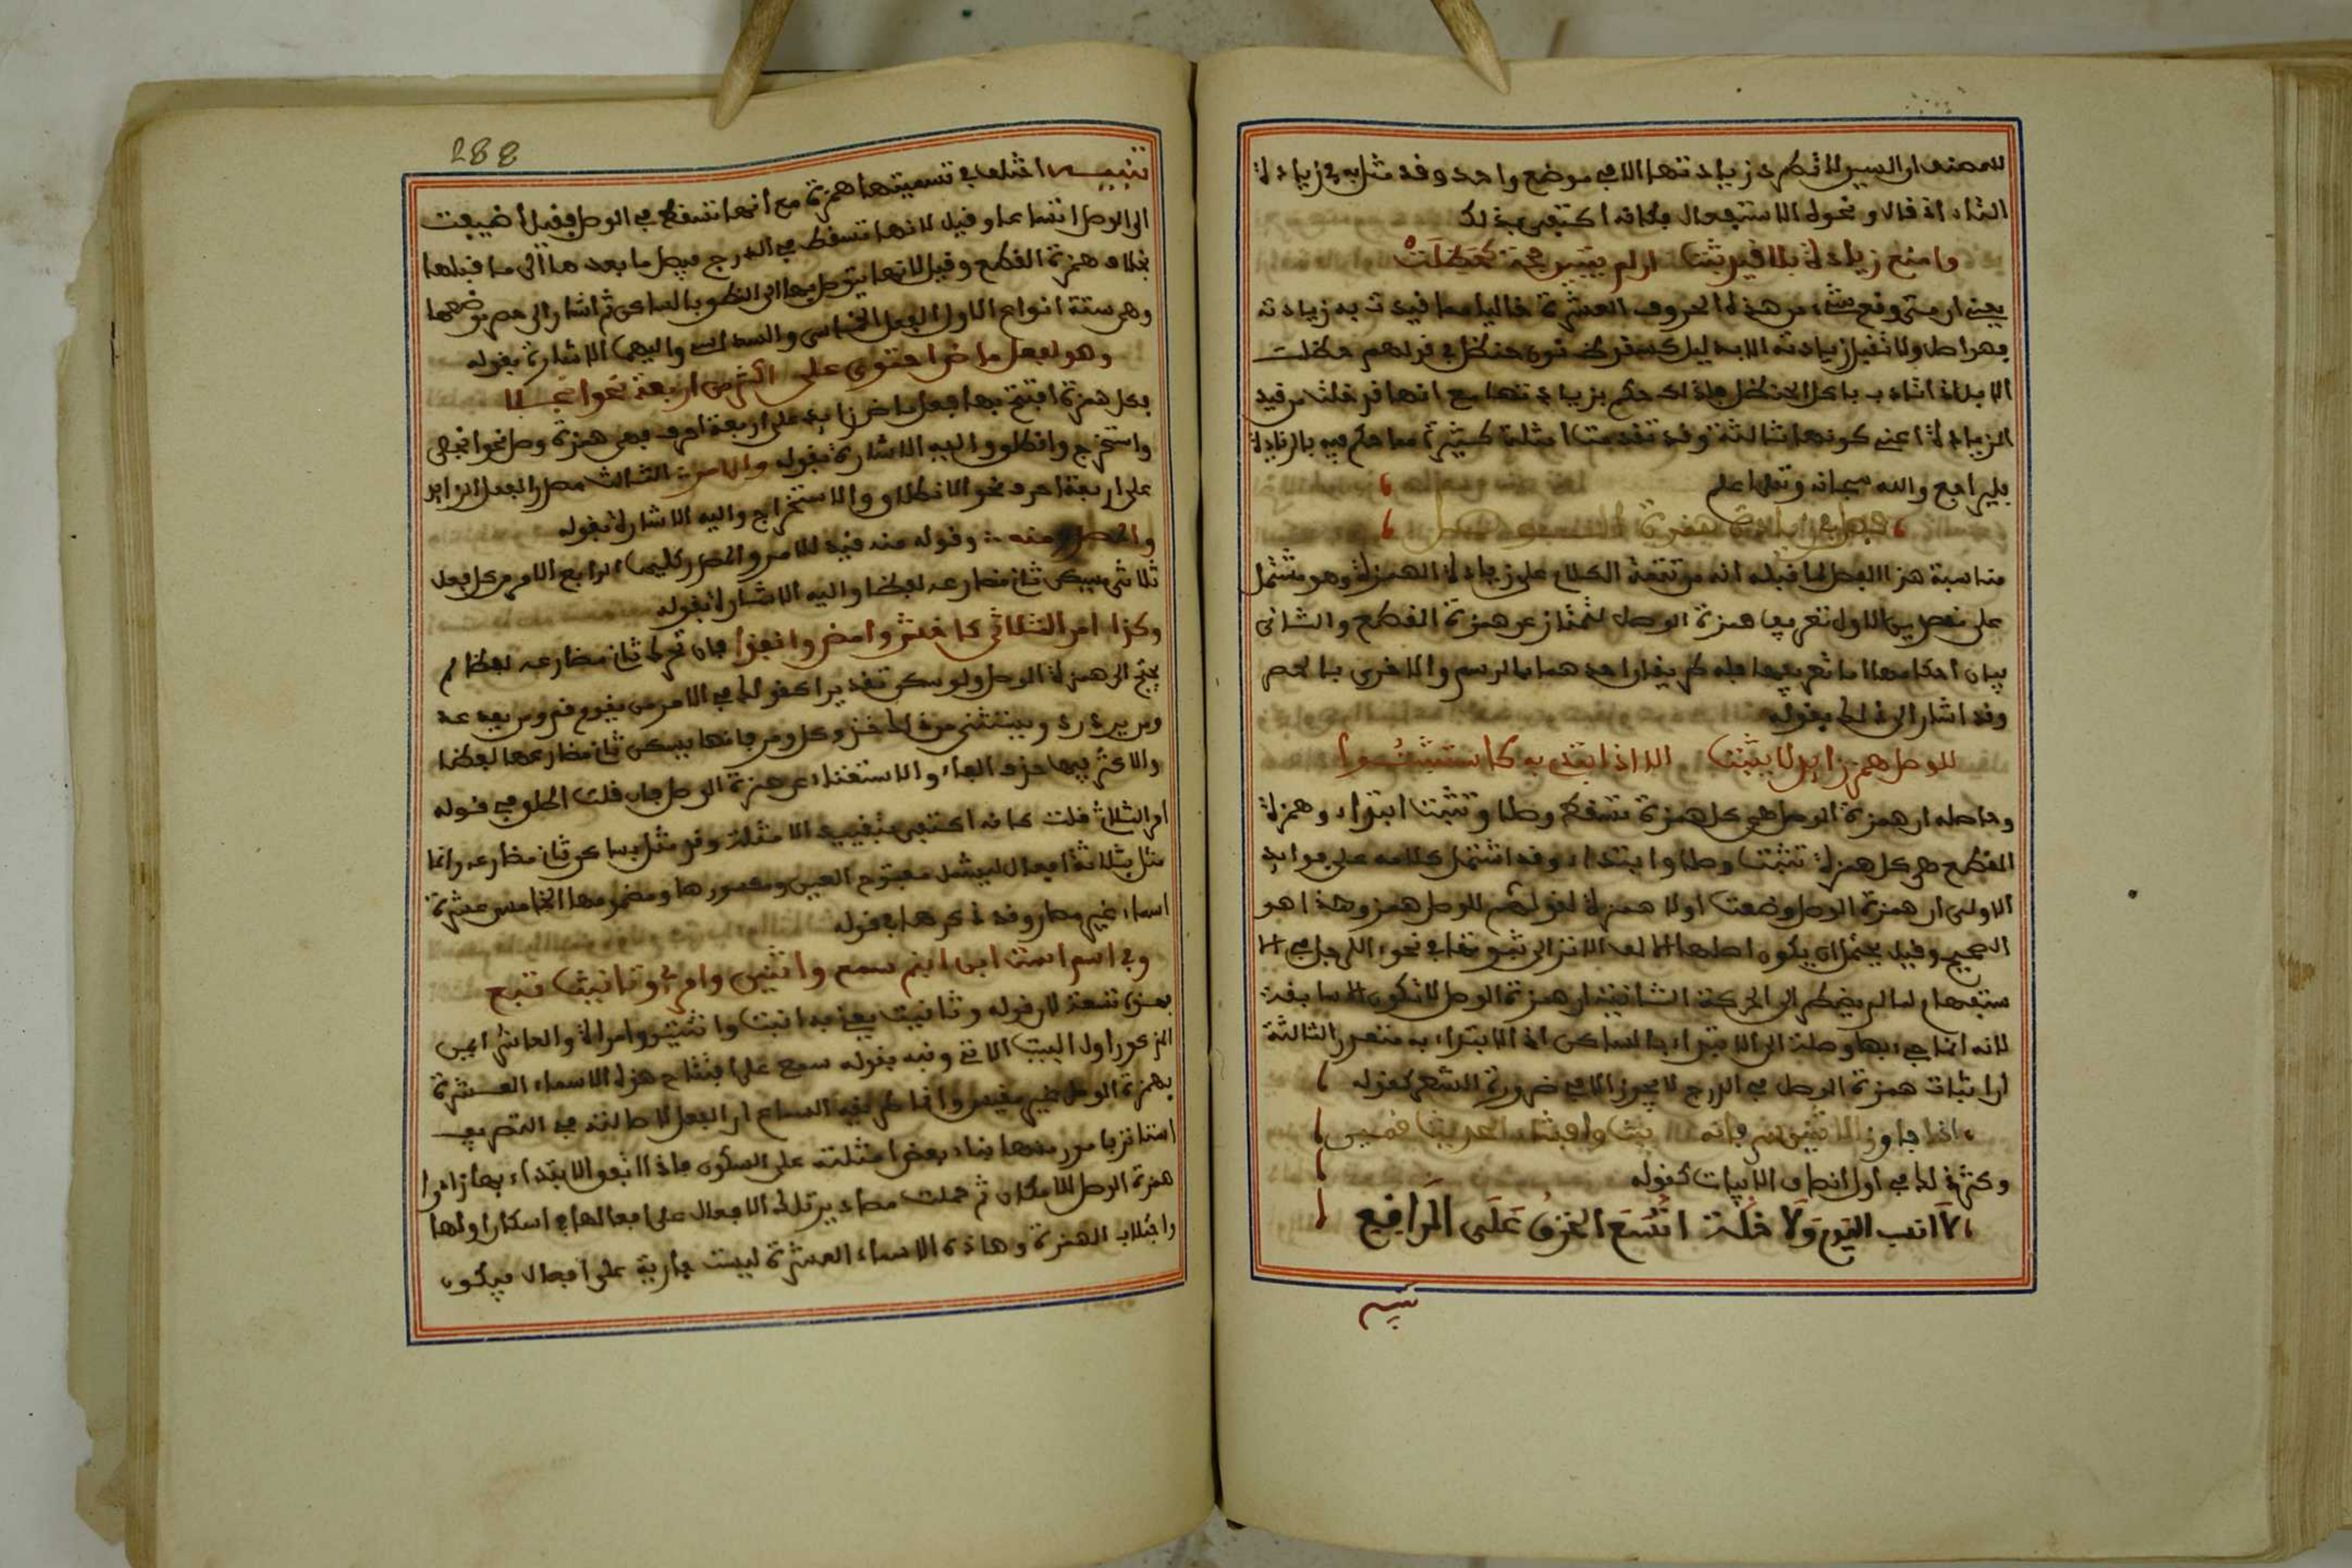 للمصنف ان السين لا تطرد زيادتها الا في موضع واحد وقد مثل به في زيادة
التاء اذ قال ونحو الاستفعال فكانه اكتفى بذلك
وامنع زيادة بلا قيد ثبت ان لم تبين حجة كحظلت
يعني ان متى وقع شيء من هذه الحروف العشرة خاليا مما قيدت به زيادته
فهو اصل ولا تقبل زيادته الا بدليل كسقوط نون حنظل في قولهم حظلت
الابل اذا تاذت باكل الحنظل فلذلك حكم بزيادتها مع انها قد خلت من قيد
الزيادة اعني كونها ثالثة وقد تقدمت امثلة كثيرة مما حكم فيه بالزيادة
فليراجع والله سبحانه وتعلى اعلم
فصل في زيادة همزة الوصل
مناسبة هذا الفصل لما قبله انه من تتمة الكلام على زيادة الهمزة وهو مشتمل
على مقصدين الاول تعريف همزة الوصل لتمتاز عن همزة القطع والثاني
بيان احكامها اما تعريفها فله طريقان احدهما بالرسم والاخرى بالحصر
وقد اشار الى ذلك بقوله
للوصل همز زايد لا يثبت الا اذا ابتدي به كاستثبتوا
وحاصله ان همزة الوصل هي كل همزة تسقط وصلا وتثبت ابتداء وهمزة
القطع هي كل همزة تثبت وصلا وابتداء وقد اشتمل كلامه على فوايد
الاولى ان همزة الوصل وضعت اولا همزة لقولهم للوصل همز وهذا هو
الصحيح وقيل يحتمل ان يكون اصلها الالف الا ترى ثبوتها في نحو ءالرجل في الا
ستفهام لما لم يضطر الى الحركة الثانية ان همزة الوصل لا تكون الا سابقة
لانه انما جيء بها وصلة الى الابتداء بالساكن اذ الابتداء به متعذر الثالثة
ان اثبات همزة الوصل في الدرج لا يجوز الا في ضرورة الشعر كقوله
اذا جاوز الاثنين سر فانه بنث وافشاء الحديث قمين
وكثر ذلك في اول انصاف الابيات كقوله
لا نسب اليوم ولا خلة اتسع الخرق على الرافع
تنبيه
288
تنبيه اختلف في تسميتها همزة مع انها تسقط في الوصل فقيل اضيفت
الى الوصل اتساعا وقيل لانها تسقط في الدرج فيصل ما بعدها الى ما قبلها
بخلاف همزة القطع وقيل لانها يتوصل بها الى النطق بالساكن ثم اشار الى حصر مواضعها
وهي ستة انواع الاول الفعل الخماسي والسداسي واليهما الاشارة بقوله
وهو لفعل ماض احتوى على اكثر من اربعة نحو انجلا
فكل همزة افتتح بها فعل ماض زايد على اربعة احرف فهي همزة وصل نحو انجلى
واستخرج وانطلق واليه الاشارة بقوله والامر الثالث مصدر الفعل الزايد
على اربعة احرف نحو الانطلاق والاستخراج واليه الاشارة بقوله
والمصدر منه وقوله منه قيد للامر والمصدر كليهما الرابع الامر من كل فعل
ثلاثي يسكن ثاني مضارعه لفظا واليه الاشارة بقوله
وكذا امر الثلاثي كاخش وامض وانفذا فان تحرك ثاني مضارعه لفظا لم
يحتج الى همزة الوصل ولو سكن تقديرا كقولك في الامر من يقوم قم ومن يعد عد
ومن يرد رد ويستثنى من ذلك خذ وكل ومر فانها يسكن ثاني مضارعها لفظا
والاكثر فيها حذف الفاء والاستغناء عن همزة الوصل فان قلت اطلق في قوله
امر الثلاثي قلت كانه اكتفى بتقييد الامثلة وقد مثل بساكن ثاني مضارعه وانما
مثل بثلاثة افعال ليشمل مفتوح العين ومكسورها ومضمومها الخامس عشرة
اسماء غير مصادر وقد ذكرها في قوله
وفي اسم است ابن ابنم سمع واثنين وامرئ وتانيث تبع
فهذه تسعة لان قوله وتانيث يعني به ابنت واثنتين وامراة والعاشر ايمن
المذكور اول البيت الاتي ونبه بقوله سمع على افتتاح هذه الاسماء العشرة
بهمزة الوصل غير مقيس وانما طريقه السماع ان الفعل لاصالته في التصريف
استاثر بامور منها بناء بعض امثلته على السكون فاذا اتفق الابتداء بها زادوا
همزة الوصل للامكان ثم حملت مصادر تلك الافعال على افعالها في اسكان اولها
واجتلاب الهمزة وهاذه الاسماء العشرة ليست جارية على افعال فيكون